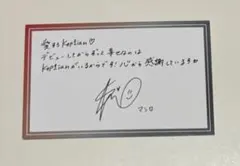 愛するKeptian♡
デビューしてからずっと幸せなのは
Keptianがいるからです! 心から感謝しています
マシロ